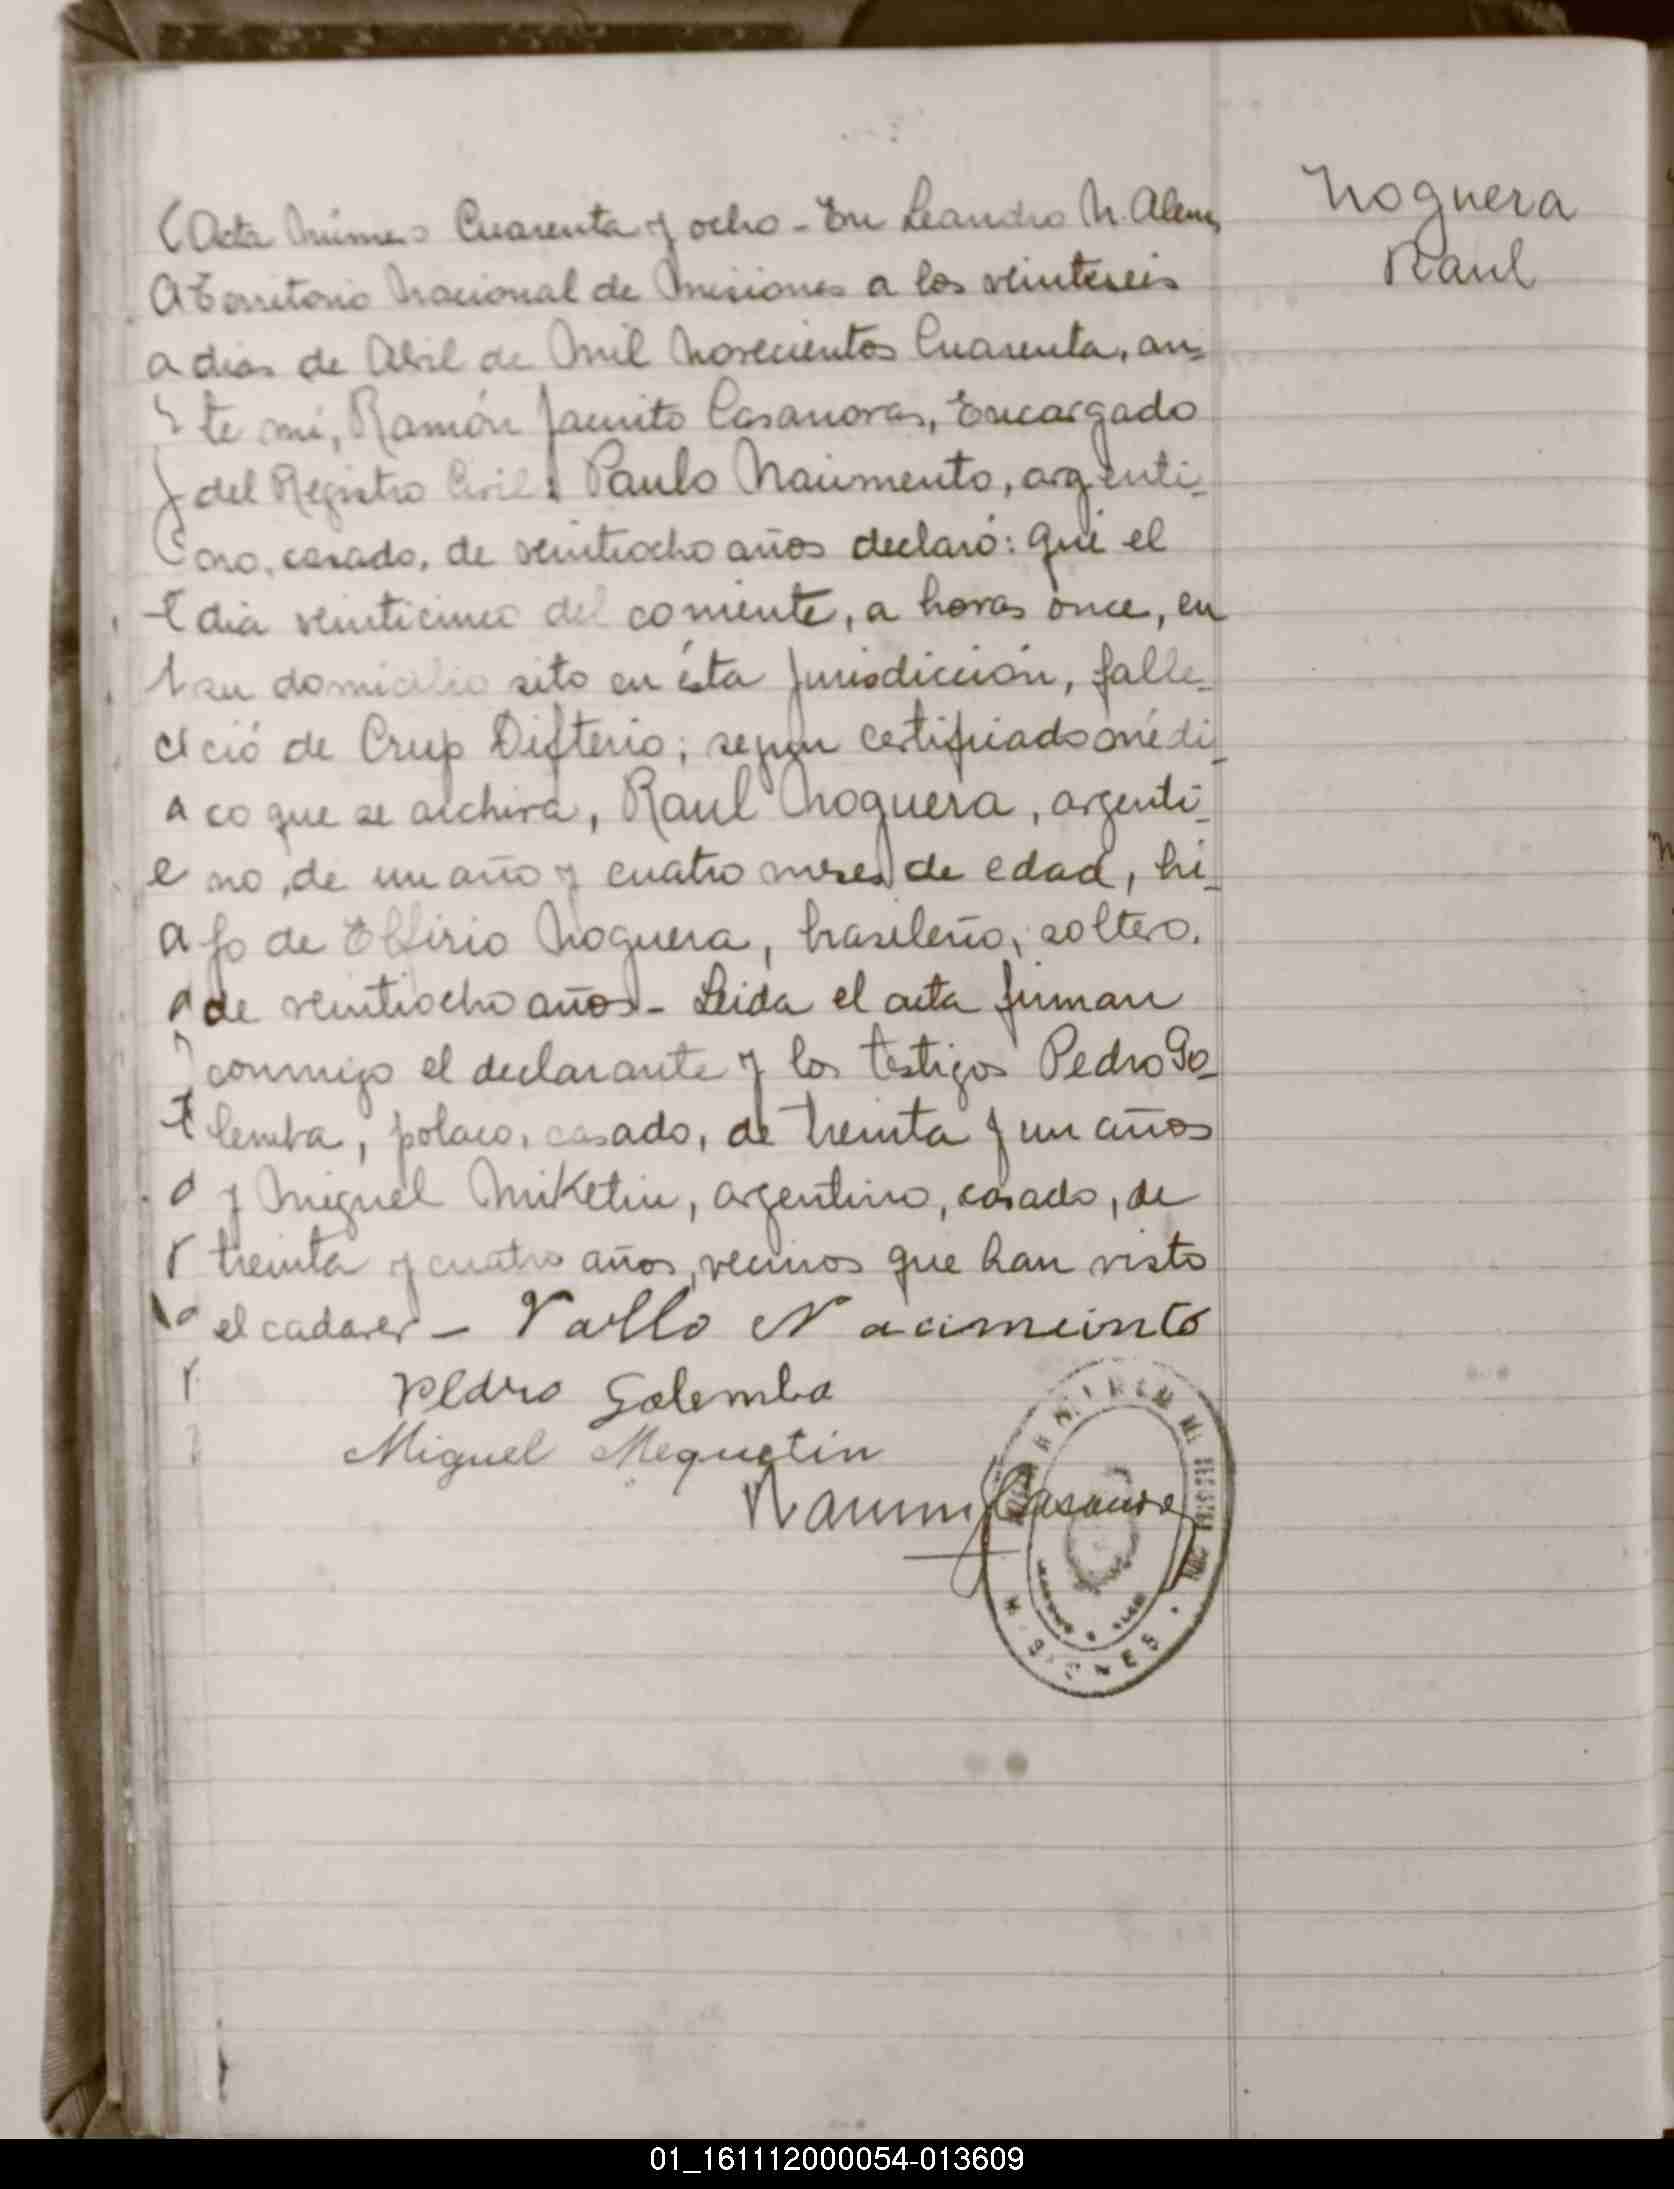 Acta Número Cuarenta y ocho - En Leandro N. Alem,
Territorio Nacional de Misiones a los veinteseis
dias de Abril de Mil Novecientos Cuarenta, an-
te mi, Ramón Jacinto Casanovas, Encargado
del Registro Civil: Paulo Naumento, argenti-
no, casado, de veintiocho años declaró: Que el
dia veinticinco del corriente, a horas once, en
su domicilio sito en ésta Jurisdicción, falle-
ció de Crup Difterio; segun certificado médi-
co que se archiva, Raul Noguera, argenti-
no, de un año y cuatro meses de edad, hi-
jo de Elfirio Noguera, brasileño, soltero,
de veintiocho años - Leida el acta firman
conmigo el declarante y los testigos Pedro Go-
lemba, polaco, casado, de treinta y un años
y Miguel Miketin, argentino, casado, de
treinta y cuatro años, vecinos que han visto
el cadaver - Pallo Nacimeinto
Pedro Golemba
Miguel Mequetin
Ramon J Casanovas
Noguera
Raul
MISIONES
01_161112000054-013609